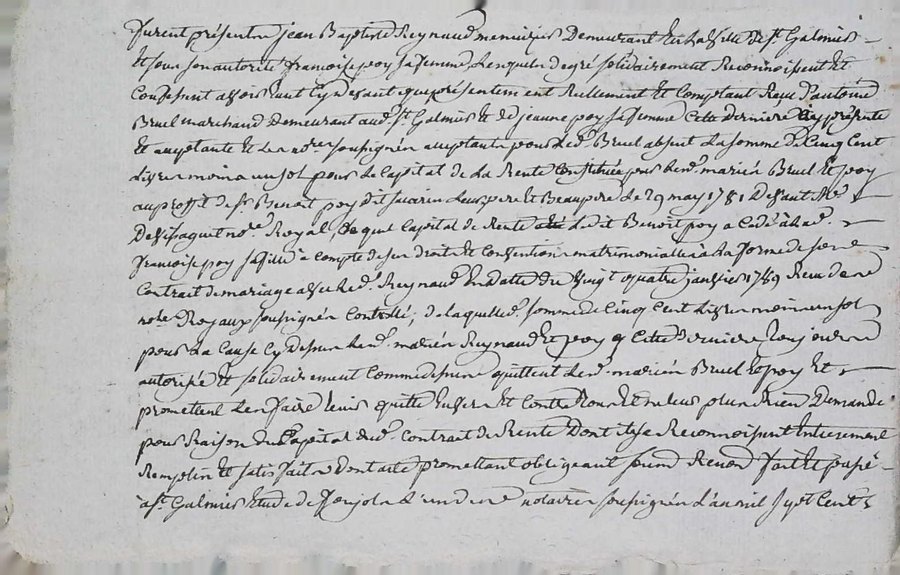 furent présents jean Baptiste Reynaud menuisier Demeurant En la ville de St Galmier
Et sous son autorité françoise poy sa femme Lesquels de gré solidairement Reconnoissent Et
Confessent avoir Eut Cy devant que présentement Réellement Et Comptant Reçu D'antoine
Bruel marchand Demeurant aud. St Galmier Et de jeanne poy sa femme Cette Derniere Cy présente
Et acceptante Et Les nores soussignés acceptants pour Led. Bruel absent La somme de Cinq Cent
Livres moins un sol pour Le Capital de La Rente Constituée par Les d. mariés Bruel Et poy
au proffit de sr Benoit poy dit Leur pere Et Beaupere Le 29 may 1781 Devant Me
nore Royal, De quel Capital de Rente Ledit Benoit poy a Cédé à Lad.
françoise poy sa fille à Compte de ses droits Et Constitution matrimoniale à La forme de son
Contrat de mariage avec Led. Reynaud En datte du Vingt quatre janvier 1789 Reçu
nores Royaux soussignés Controllé; de laquelle d. somme de Cinq Cent Livres moins un sol
pour La Cause Cy dessus Les d. mariés Reynaud Et poy Cette Derniere toujours
autorisée Et solidairement Comme dessus quittent Les d. mariés Bruel Et poy Et
promettent Les faire tenir quitte Envers Et Contre tous Et ne Leur plus Rien Demander
pour Raison du Capital dud. Contrat de Rente Dont ils se Reconnoissent Entierement
Remplis Et satisfaits Dont acte promettant obligeant soum. Renon. fait Et passé
à St Galmier Etude de L'un des notaires soussignés L'an mil sept Cent